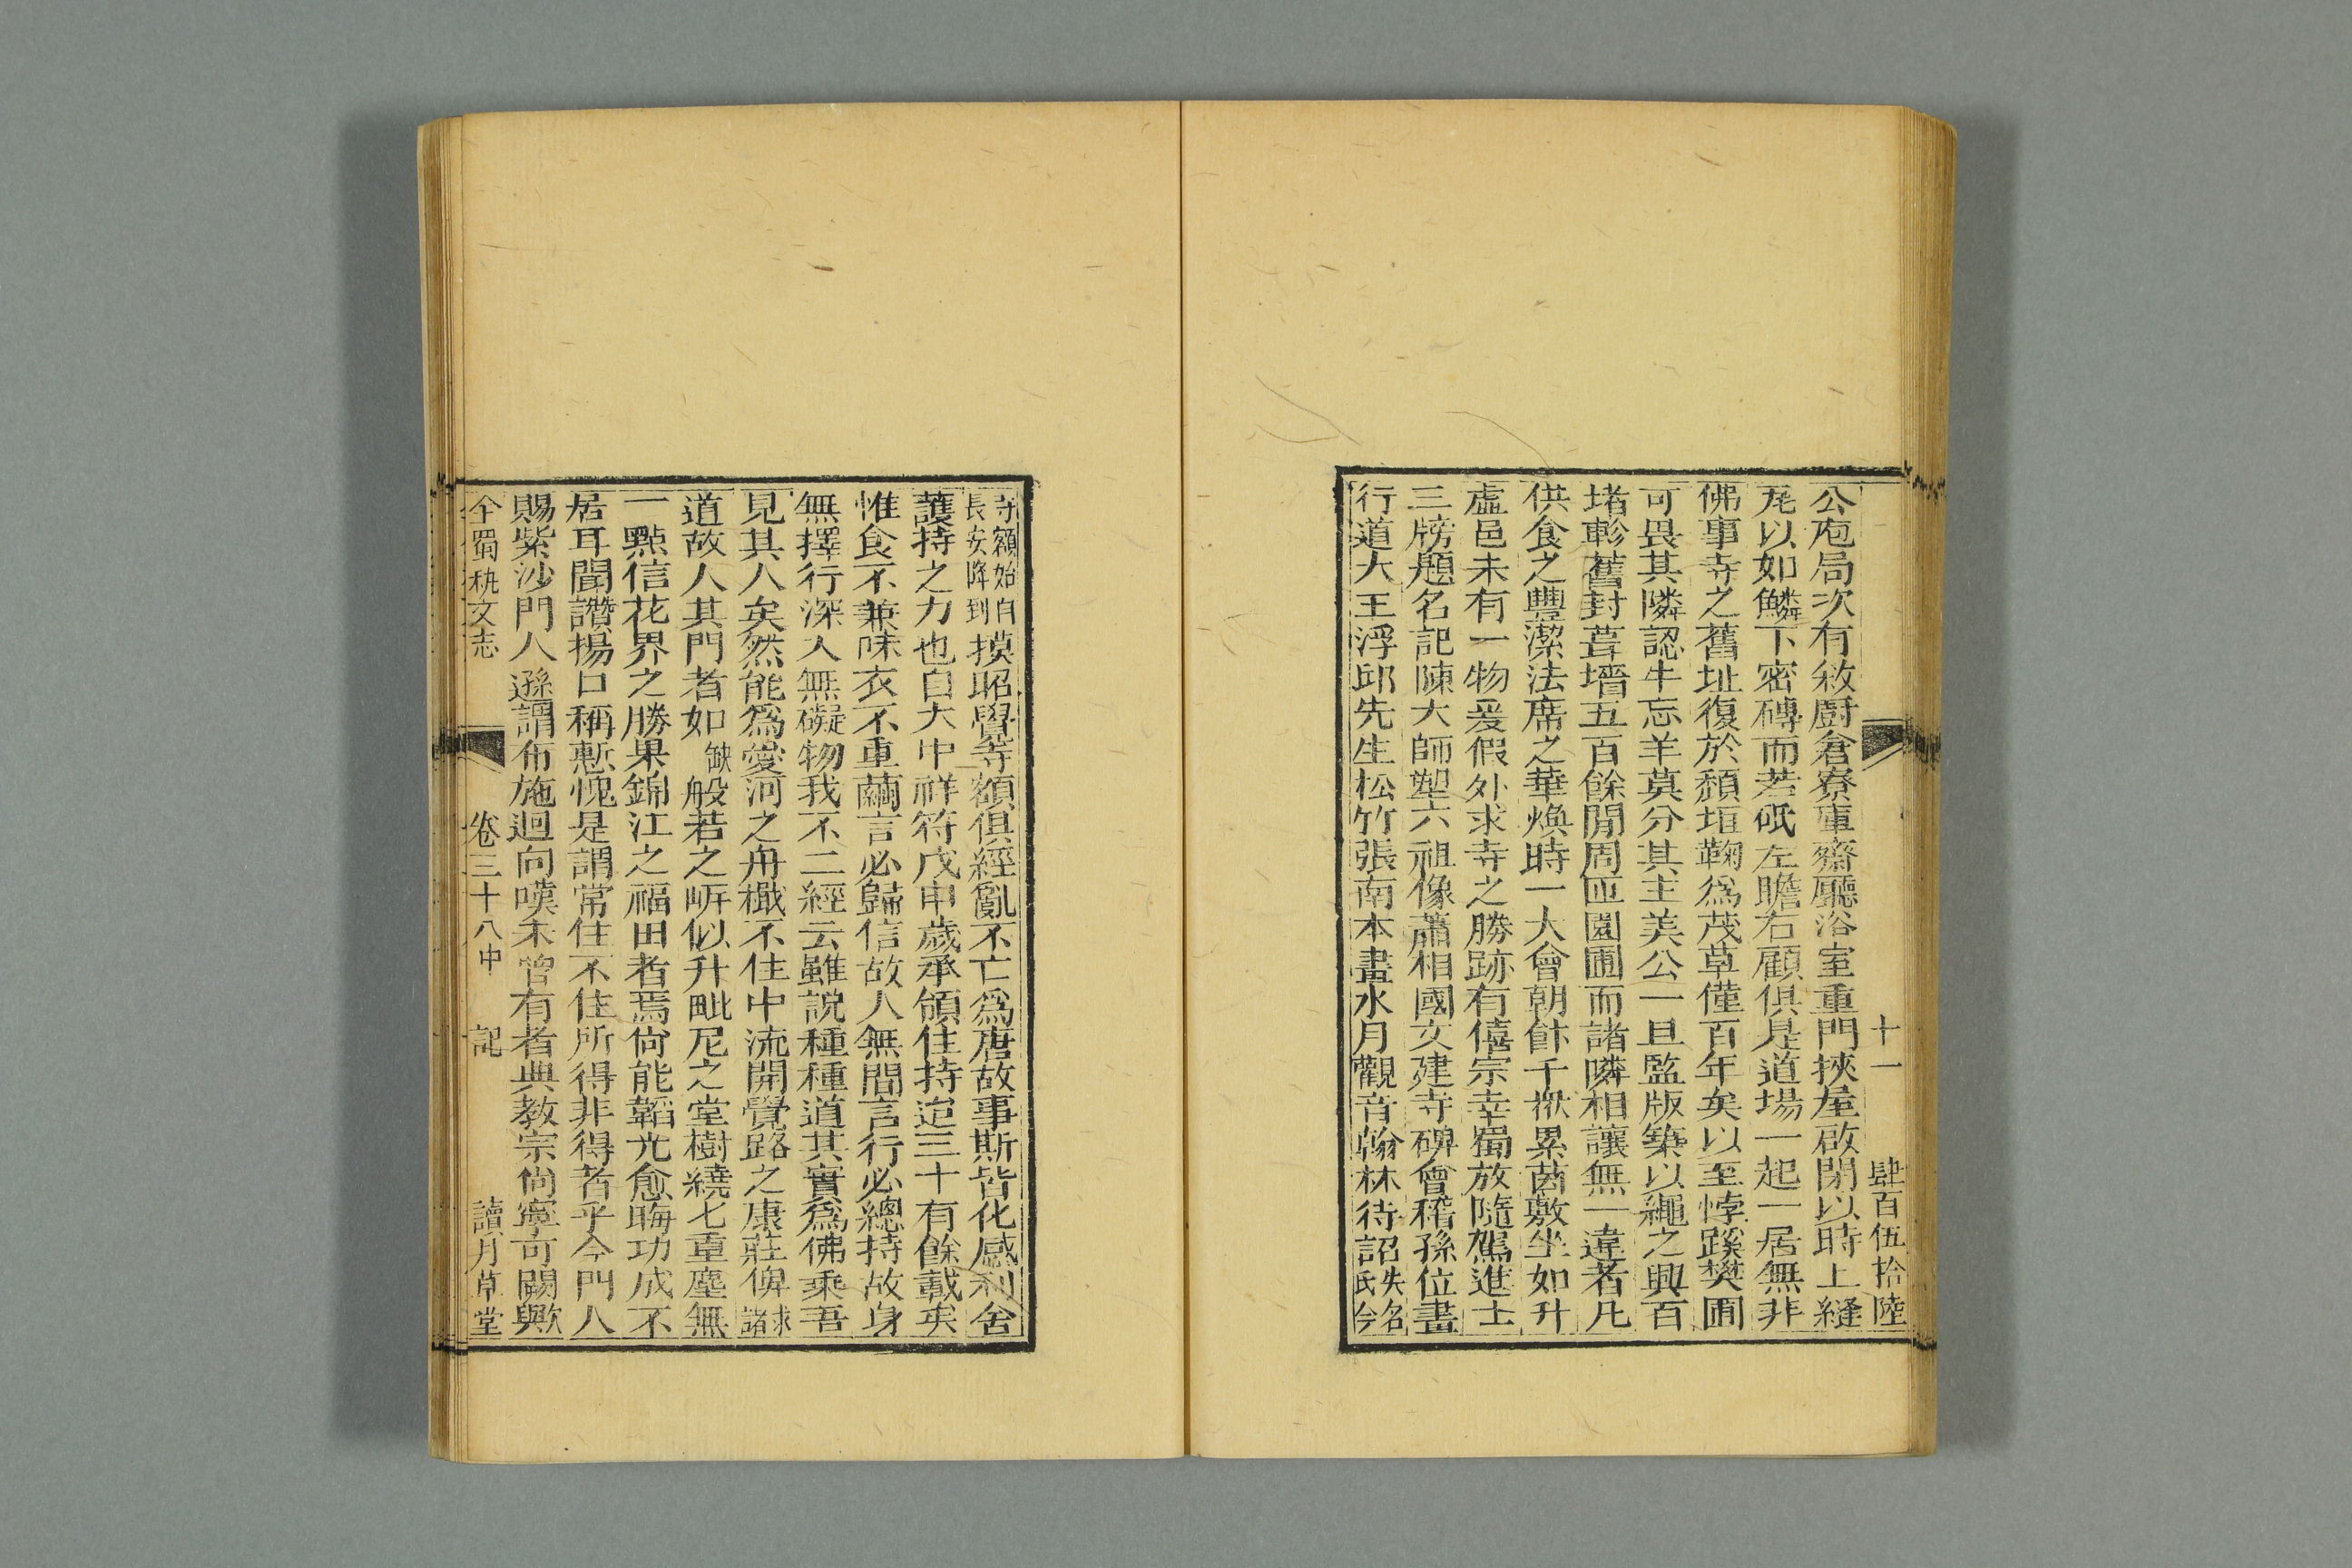 十一　肆百伍拾陸
公庖局次有敘廚倉寮重齋廳浴室重門挾屋啟閉以時上縫
𤬪以如鱗下密磚而若砥左瞻右顧俱是道場一起一居無非
佛事寺之舊址復於頹垣鞠爲茂草僅百年矣以至悖蹊樊圃
可畏其隣認牛忘羊莫分其主美公一旦監版築以繩之興百
堵軫舊封葺墻五百餘間周匝園圃而諸隣相讓無一違者凡
供食之豐潔法席之華煥時一大會朝餅千㭫累茵敷坐如升
虛邑未有一物爰假外求寺之勝跡有僖宗幸蜀放隨駕進士
三牓題名記陳大師塑六祖像蕭相國文建寺碑會稽孫位畫
行道大王浮邱先生松竹張南本畫水月觀音翰林待詔失名氏今
寺額始自長安降到摸昭覺等額俱經亂不亡爲唐故事斯皆化感利舍
護持之力也自大中祥符戊申歲承領住持迨三十有餘載矣
惟食不兼味衣不重繭言必歸信故人無間言行必總持故身
無擇行深入無礙物我不二經云雖說種種道其實爲佛乘吾
見其人矣然能爲愛河之舟檝不住中流開覺路之康莊俾求諸
道故人其門者如缺般若之㟁似升毗尼之堂樹繞七重塵無
一點信花界之勝果錦江之福田者焉尙能韜光愈晦功成不
居耳聞讚揚口稱慙愧是謂常住不住所得非得者乎今門人
賜紫沙門人遜謂布施迴向嘆未曾有者典教宗尙寧可闕歟
全蜀秇文志　卷三十八中　記　讀月草堂